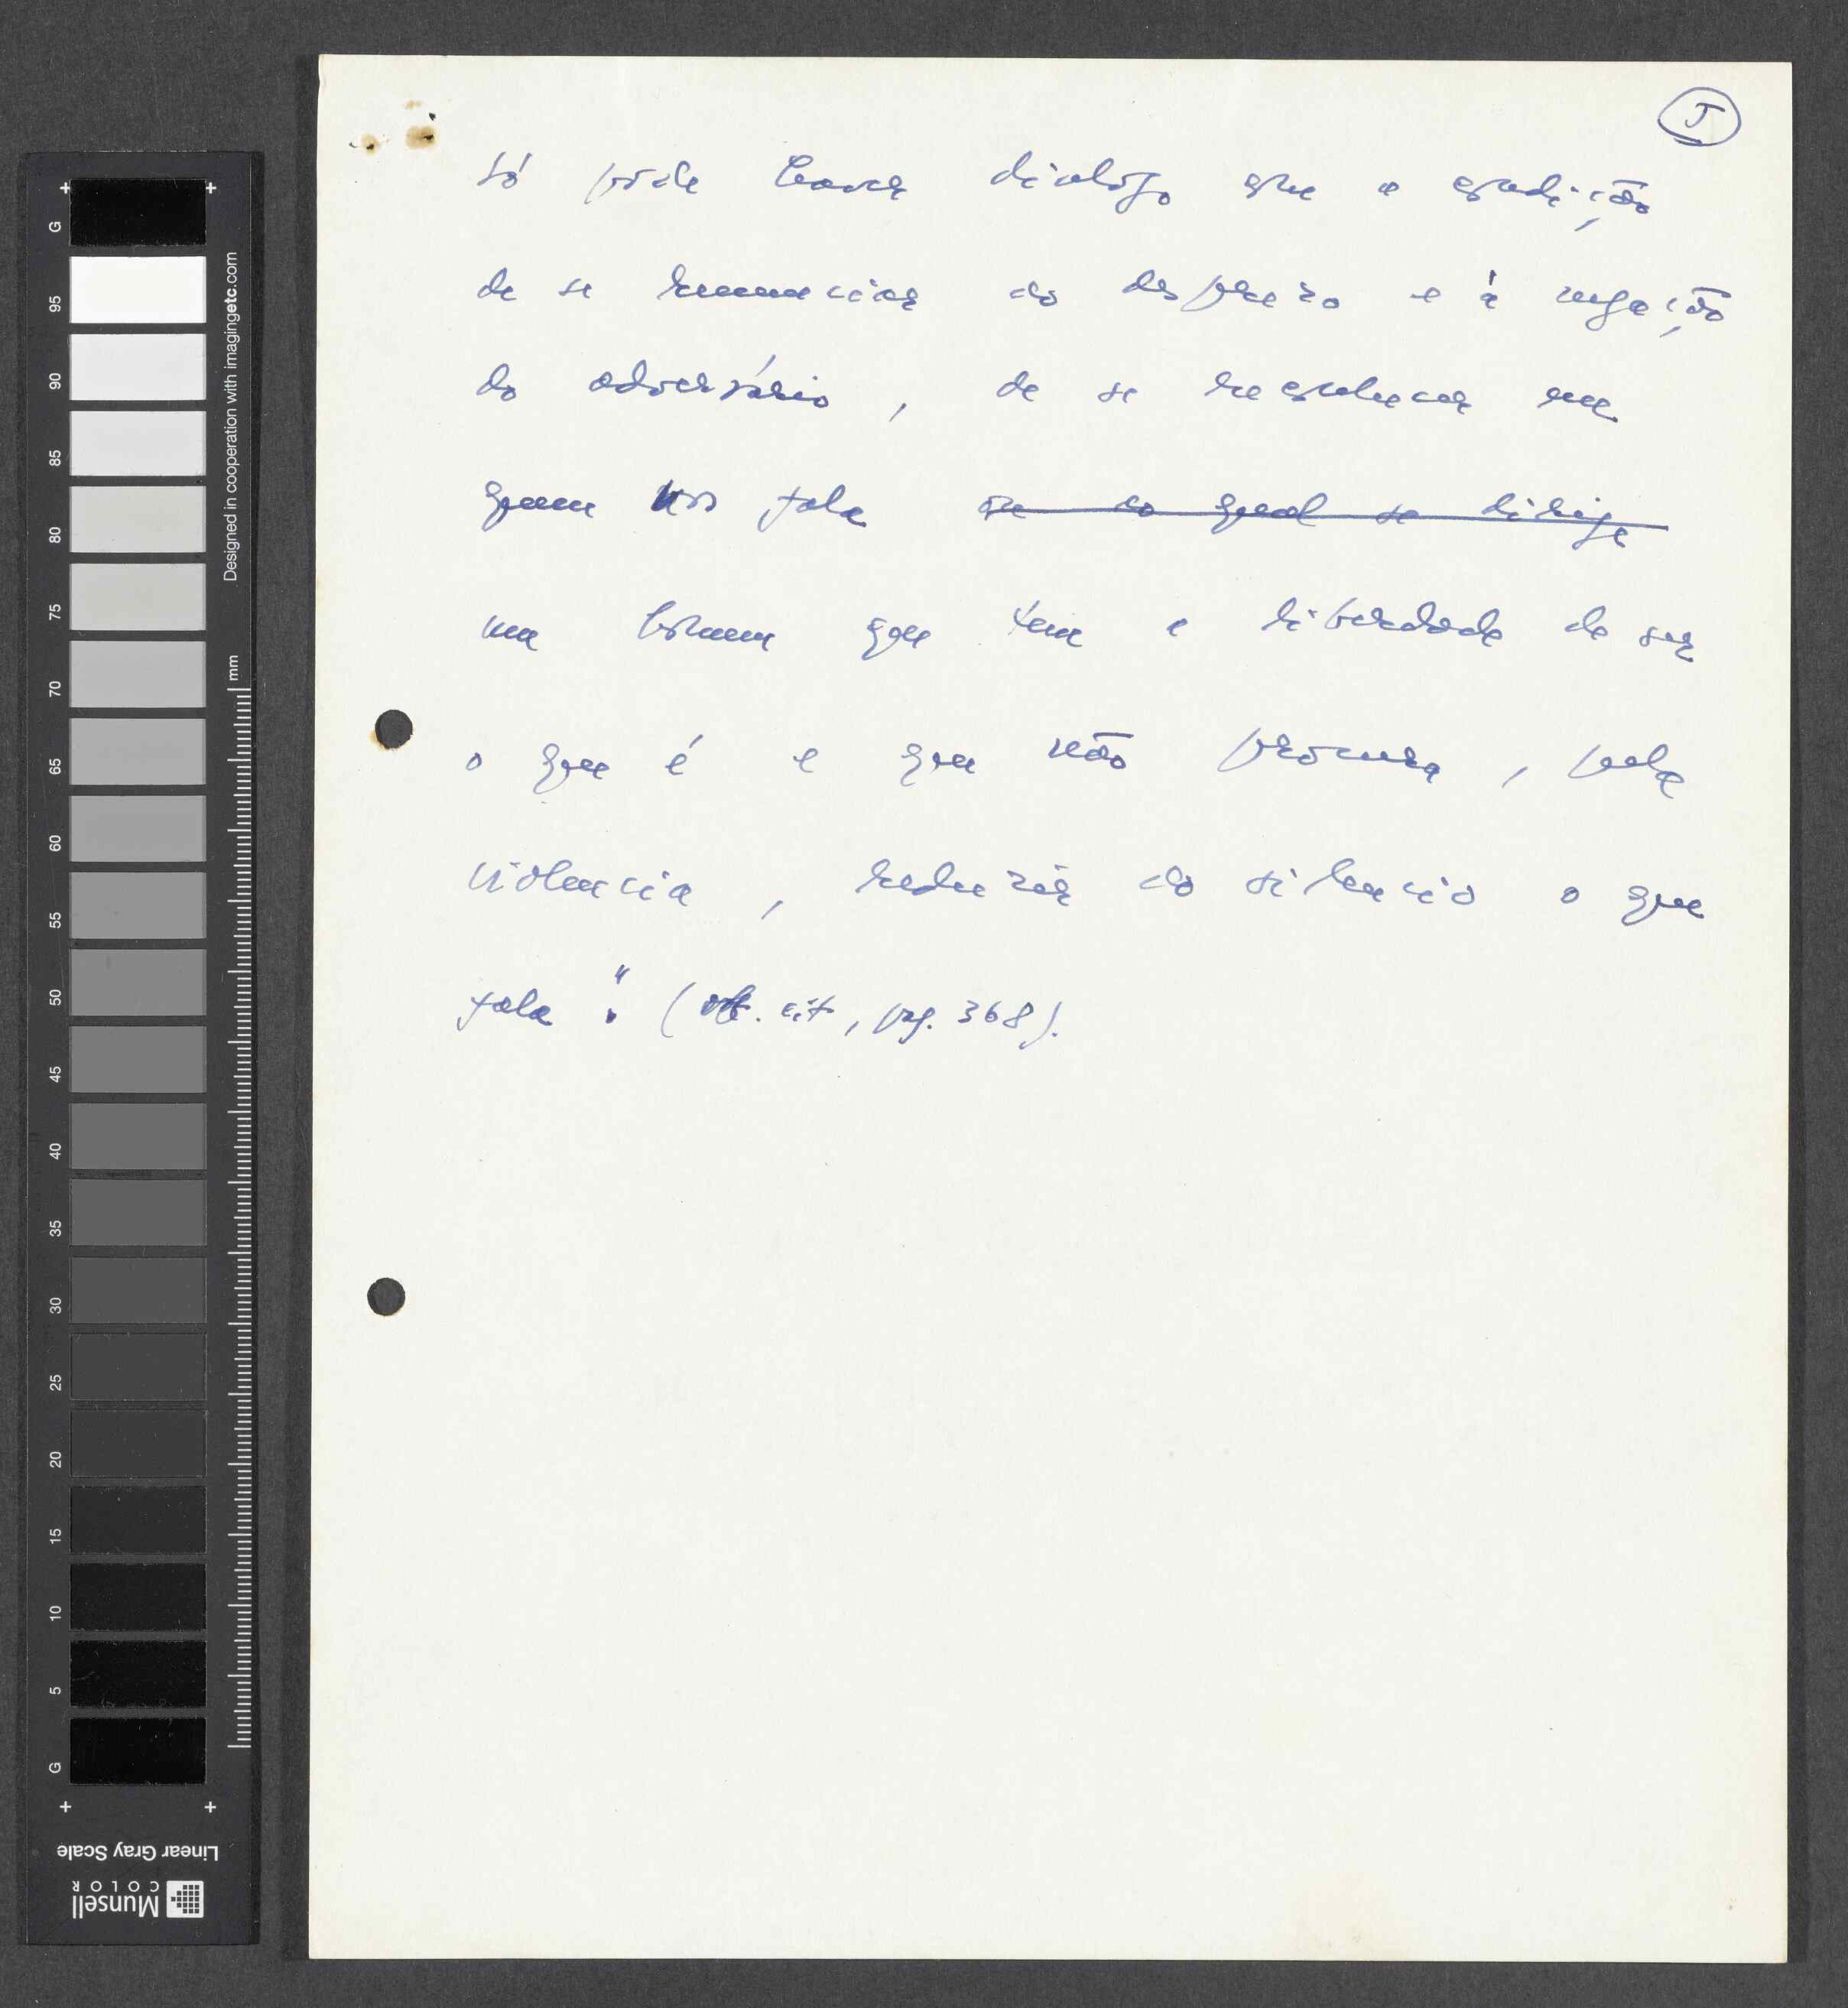 5
só póde haver dialogo sob a condição
de se renunciar ao desprezo e à negação
do adversário, de se reconhecer em
quem nos fala ou ao qual se dirige
um homem que tem a liberdade de ser
o que é e que não procura, pela
violencia, reduzir ao silencio o que
fala". (op. cit, pg. 368).
Designed in cooperation with imagingetc.com
mm
G
95
90
85
80
75
70
65
60
55
50
45
40
35
30
25
20
15
10
5
G
Linear Gray Scale
Munsell
COLOR